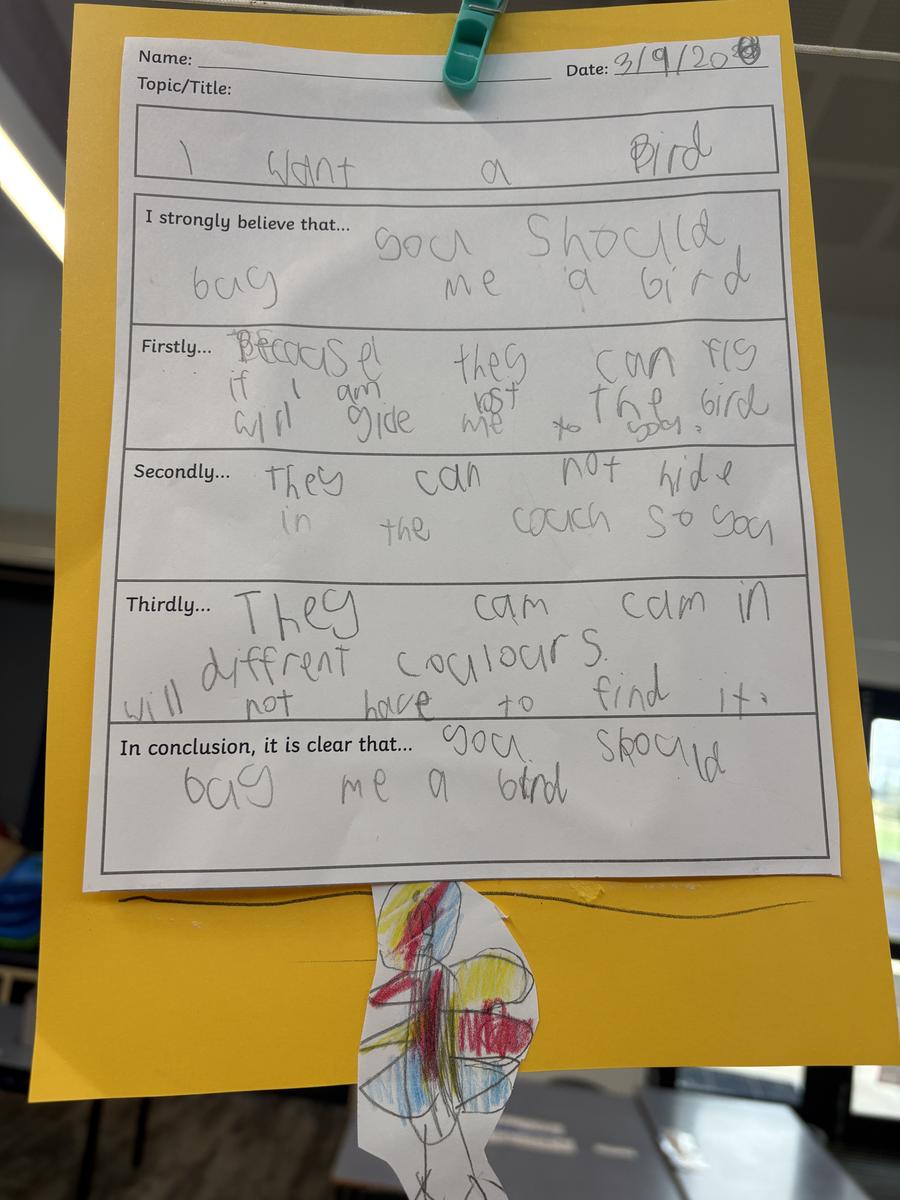 Name:
Date: 3/9/20
Topic/Title:
I want a Bird
I strongly believe that... you should
buy me a bird
Firstly... Because they can fly
if I am lost The bird
will gide me to you.
Secondly... They can not hide
in the couch so you
Thirdly... They cam cam in
diffrent coulours.
will not have to find it.
In conclusion, it is clear that... you should
buy me a bird